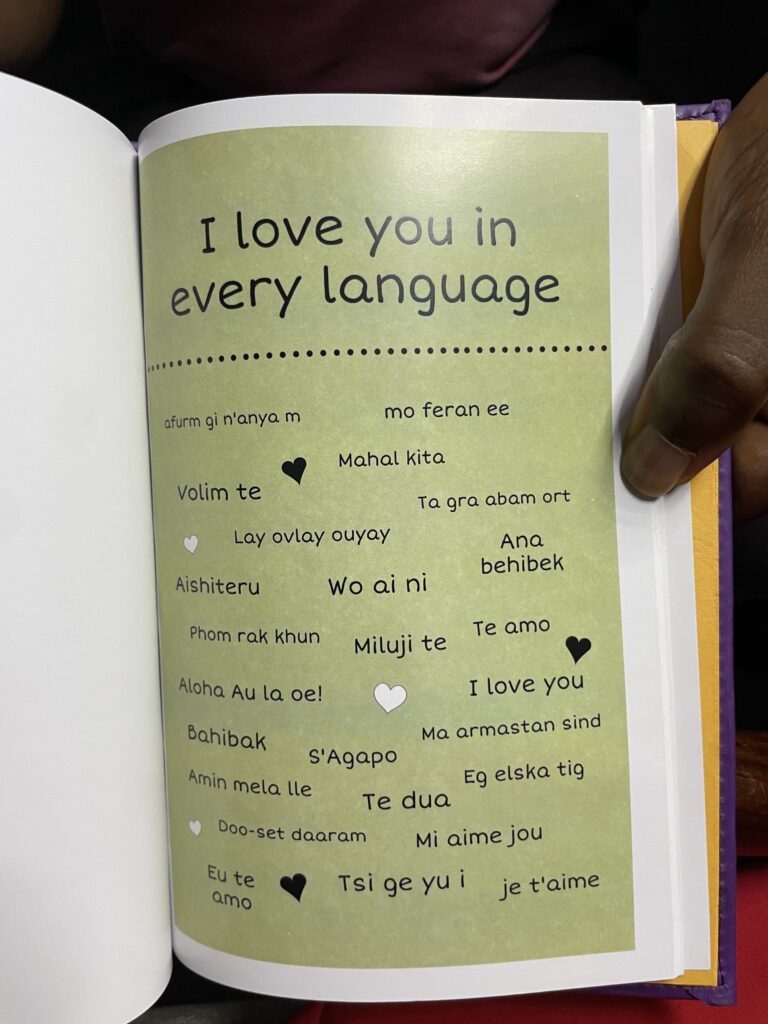 I love you in
every language
afurm gi n'anya m
mo feran ee
Mahal kita
Volim te
Ta gra abam ort
Lay ovlay ouyay
Ana
behibek
Aishiteru
Wo ai ni
Phom rak khun
Miluji te
Te amo
Aloha Au la oe!
I love you
Bahibak
S'Agapo
Ma armastan sind
Amin mela lle
Te dua
Eg elska tig
Doo-set daaram
Mi aime jou
Eu te
amo
Tsi ge yu i
je t'aime